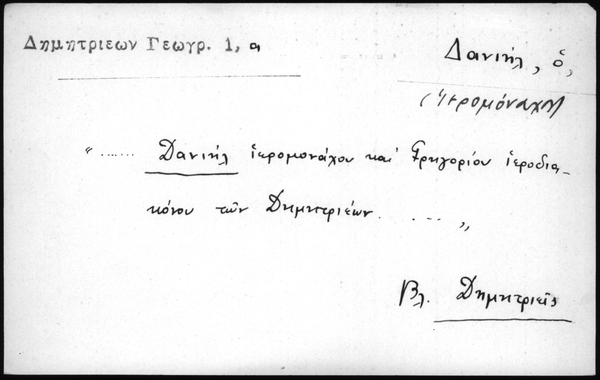 Δημητριεων Γεωγρ. 1, α
Δανιήλ, ὁ,
(Ἱερομόναχος)
"....... Δανιήλ ἱερομονάχου καί Γρηγορίου ἱεροδια-
κόνου τῶν Δημητριέων. . ... „
Βλ. Δημητριεῖς